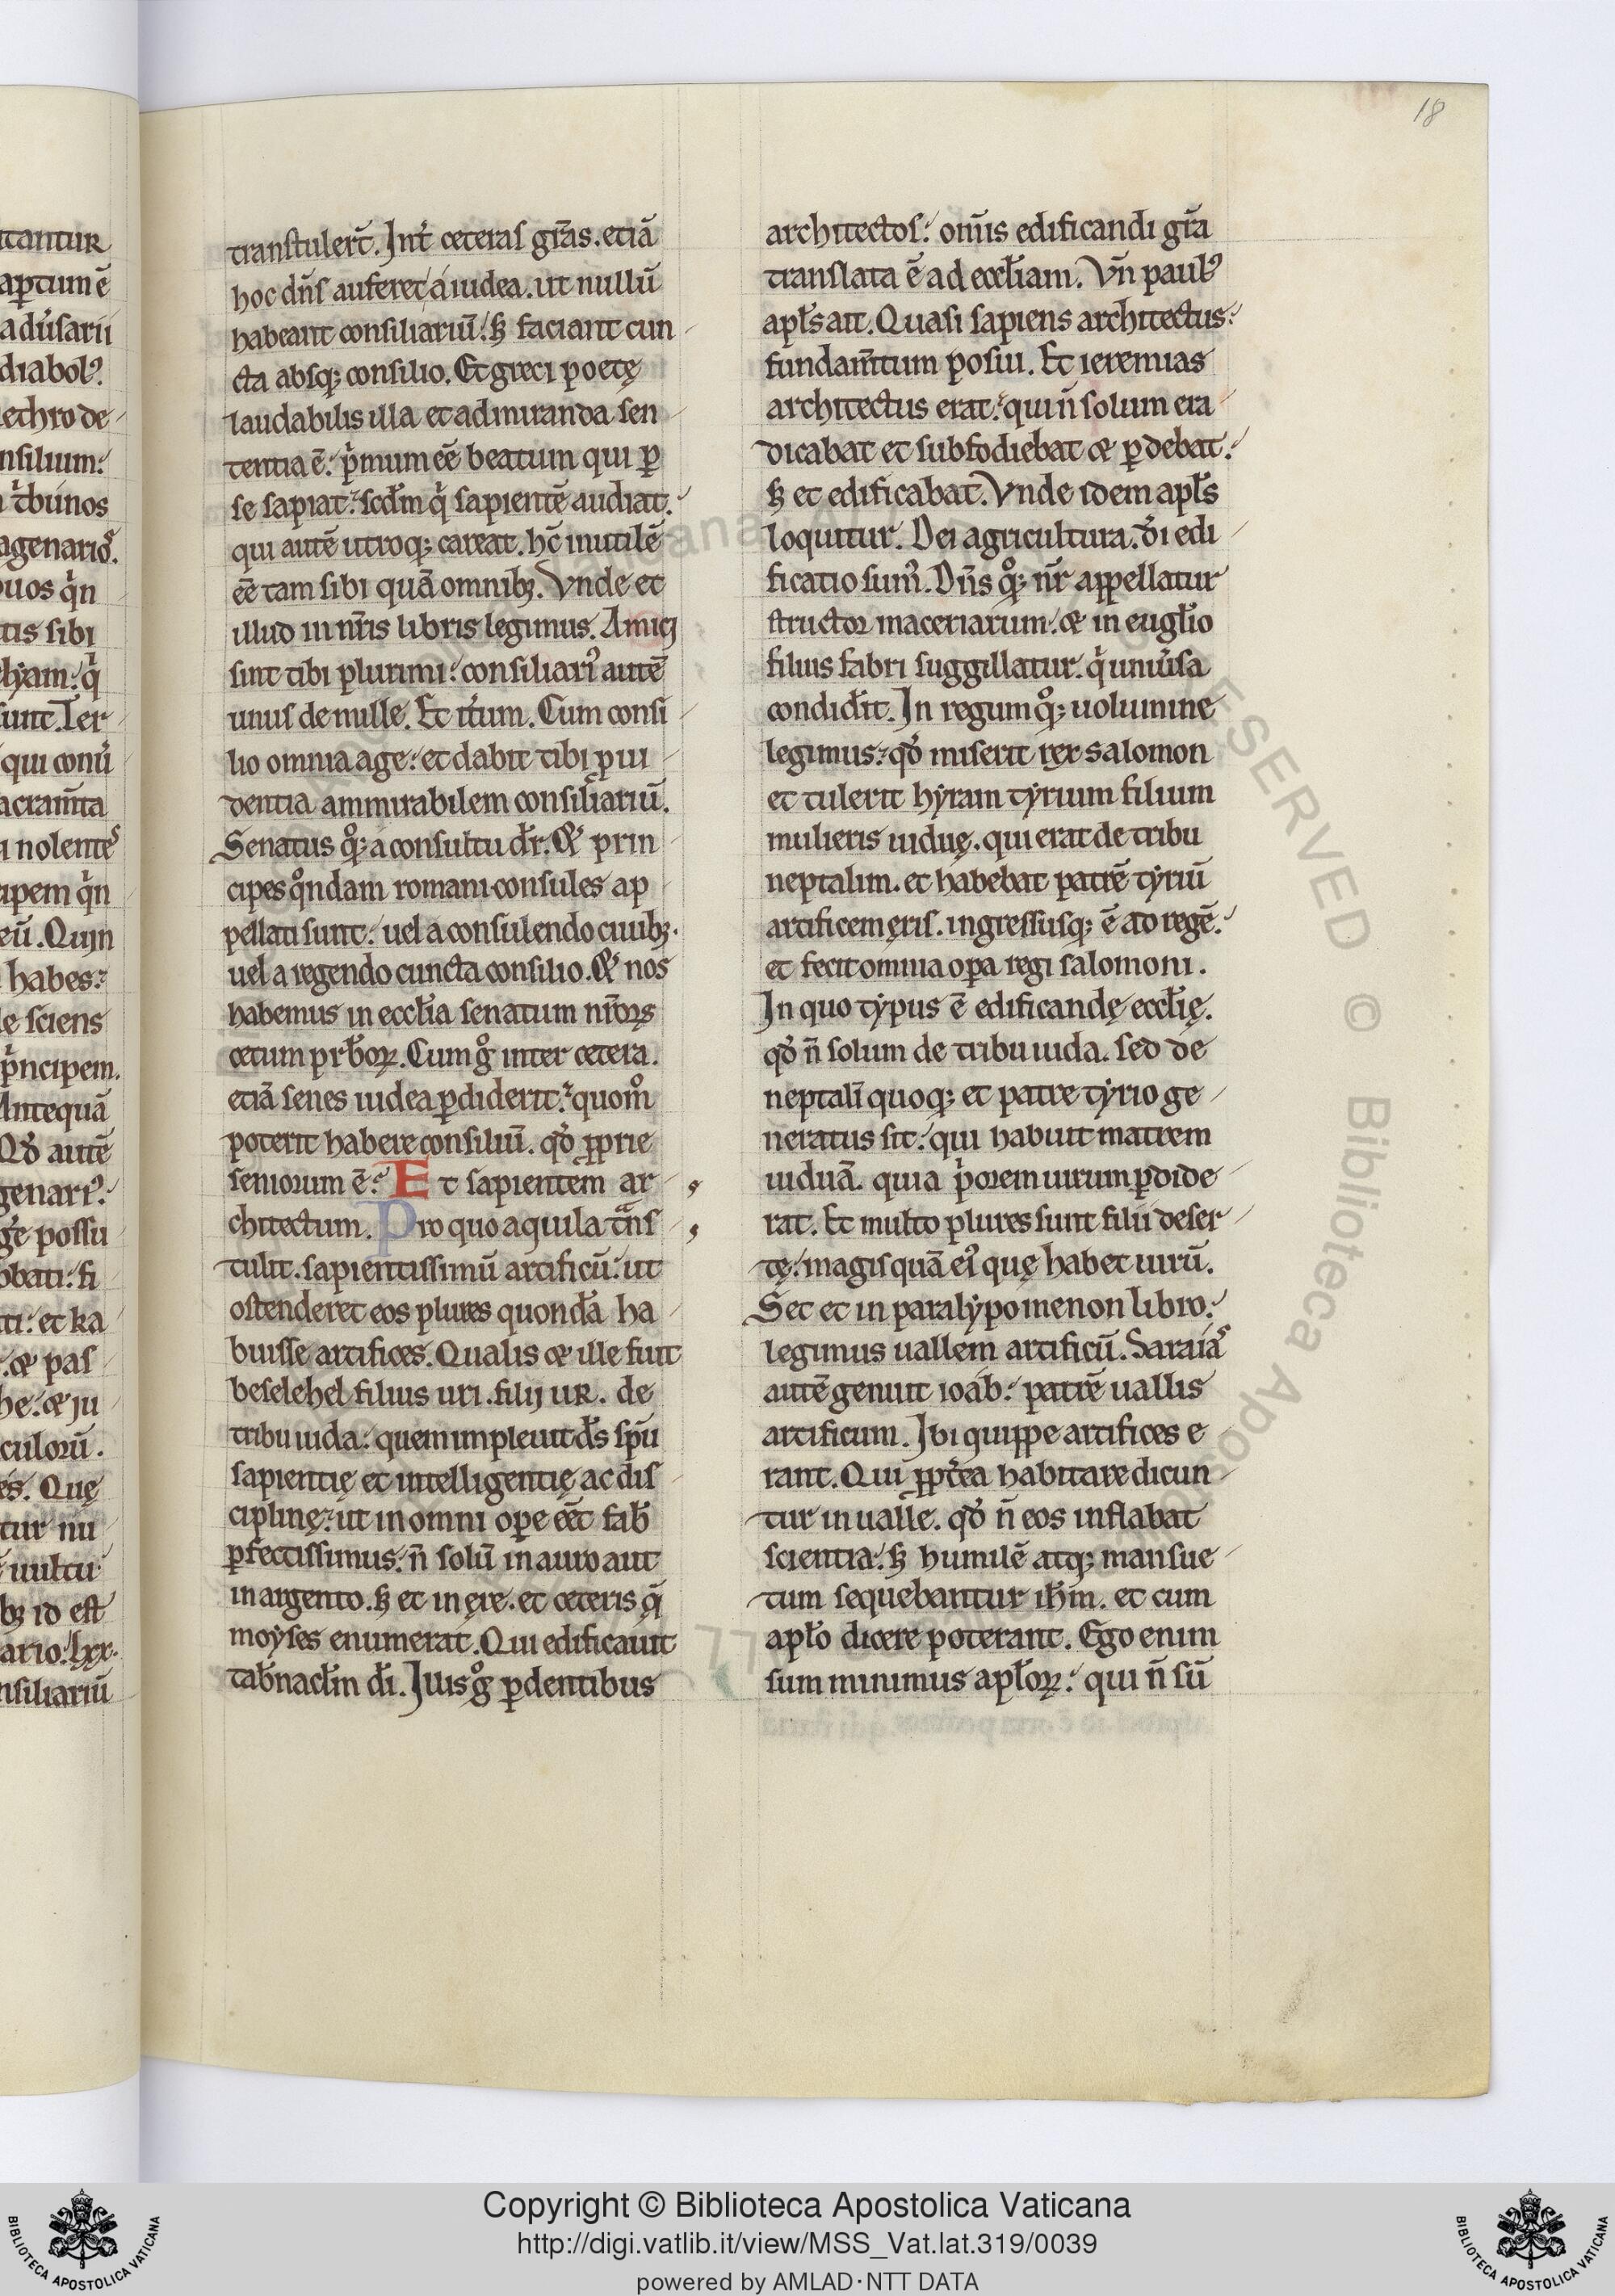 18
transtuler̄t. Int̄ ceteras gr̄as. etiā
hoc dn̄s auferet a iudea. ut nullū
habeant consiliariū. sꝫ faciant cun
cta absqꝫ consilio. Et greci poetę
laudabilis illa et admiranda sen
tentia ē. pͥmum eē beatum qui ꝑ
se sapiat. scd̄m qͥ sapientē audiat.
qui autē utroqꝫ careat. hc̄ inutilē
eē tam sibi quā omnibꝫ. Vnde et
illud in nr̄is libris legimus. Amici
sint tibi plurimi. consiliariꝰ autē
unus de mille. Et it̄um. Cum consi
lio omnia age. et dabit tibi ꝓui
dentia ammirabilem consiliariū.
Senatus qͦqꝫ a consultu dr̄. Et prin
cipes qͦndam romani consules ap
pellati sunt. uel a consulendo ciuibꝫ.
uel a regendo cuncta consilio. Et nos
habemus in eccl̄ia senatum nr̄orꝫ
cetum prb̄oꝝ. Cum gͦ inter cetera.
etiā senes iudea ꝑdiderit. quom̊
poterit habere consiliū. qd̄ ꝓprie
seniorum ē. Et sapientem ar
chitectum. Pro quo aquila tᵃns
tulit. sapientissimū artificū. ut
ostenderet eos plures quondā ha
buisse artifices. Qualis & ille fuit
beselehel filius uri. filij uR. de
tribu iuda. quem impleuit ds̄ spū
sapientię et intelligentię ac dis
ciplinę. ut in omni opere eēt fab̄
ꝑfectissimus. n̄ solū in auro aut
in argento. sꝫ et in ęre. et ceteris q̄
moyses enumerat. Qui edificauit
tab̄nacl̄m dī. Iuis gͦ ꝑdentibus
architectos. om̄is edificandi gr̄a
translata ē ad eccl̄iam. Vn̄ paulꝰ
apl̄s ait. Quasi sapiens architectus.
fundam̄tum posui. Et ieremias
architectus erat. qui n̄ solum era
dicabat et subfodiebat & ꝑdebat.
sꝫ et edificabat. Vnde idem apl̄s
loquitur. Dei agricultura. dī edi
ficatio sumꝰ. Dn̄s qͦqꝫ nr̄ appellatur
structor maceriarum. & in eugl̄io
filius fabri suggillatur. qͥ uniūsa
condidit. In regum qͦqꝫ uolumine
legimus. qd̄ miserit rex salomon
et tulerit hyram tyrium filium
mulieris uiduę. qui erat de tribu
neptalim. et habebat patrē tyriū
artificem ęris. ingressusqꝫ ē ad regē.
et fecit omnia oꝑa regi salomoni.
In quo typus ē edificandę eccl̄ię.
qd̄ n̄ solum de tribu iuda. sed de
neptalī quoqꝫ et patre tyrio ge
neratus sit. qui habuit matrem
uiduā. quia pͥorem uirum ꝑdide
rat. Et multo plures sunt filii deser
tę. magis quā eiꝰ quę habet uirū.
Set et in paralypomenon libro.
legimus uallem artificū. Saraias
autē genuit ioab. patrē uallis
artificum. Ibi quippe artifices e
rant. Qui ꝓpt̄ea habitare dicun
tur in ualle. qd̄ n̄ eos inflabat
scientia. sꝫ humilē atqꝫ mansue
tum sequebantur ih̄m. et cum
apl̄o dicere poterant. Ego enim
sum minimus apl̄oꝝ. qui n̄ sū
Copyright © Biblioteca Apostolica Vaticana
http://digi.vatlib.it/view/MSS_Vat.lat.319/0039
powered by AMLAD·NTT DATA
BIBLIOTECA APOSTOLICA VATICANA
BIBLIOTECA APOSTOLICA VATICANA